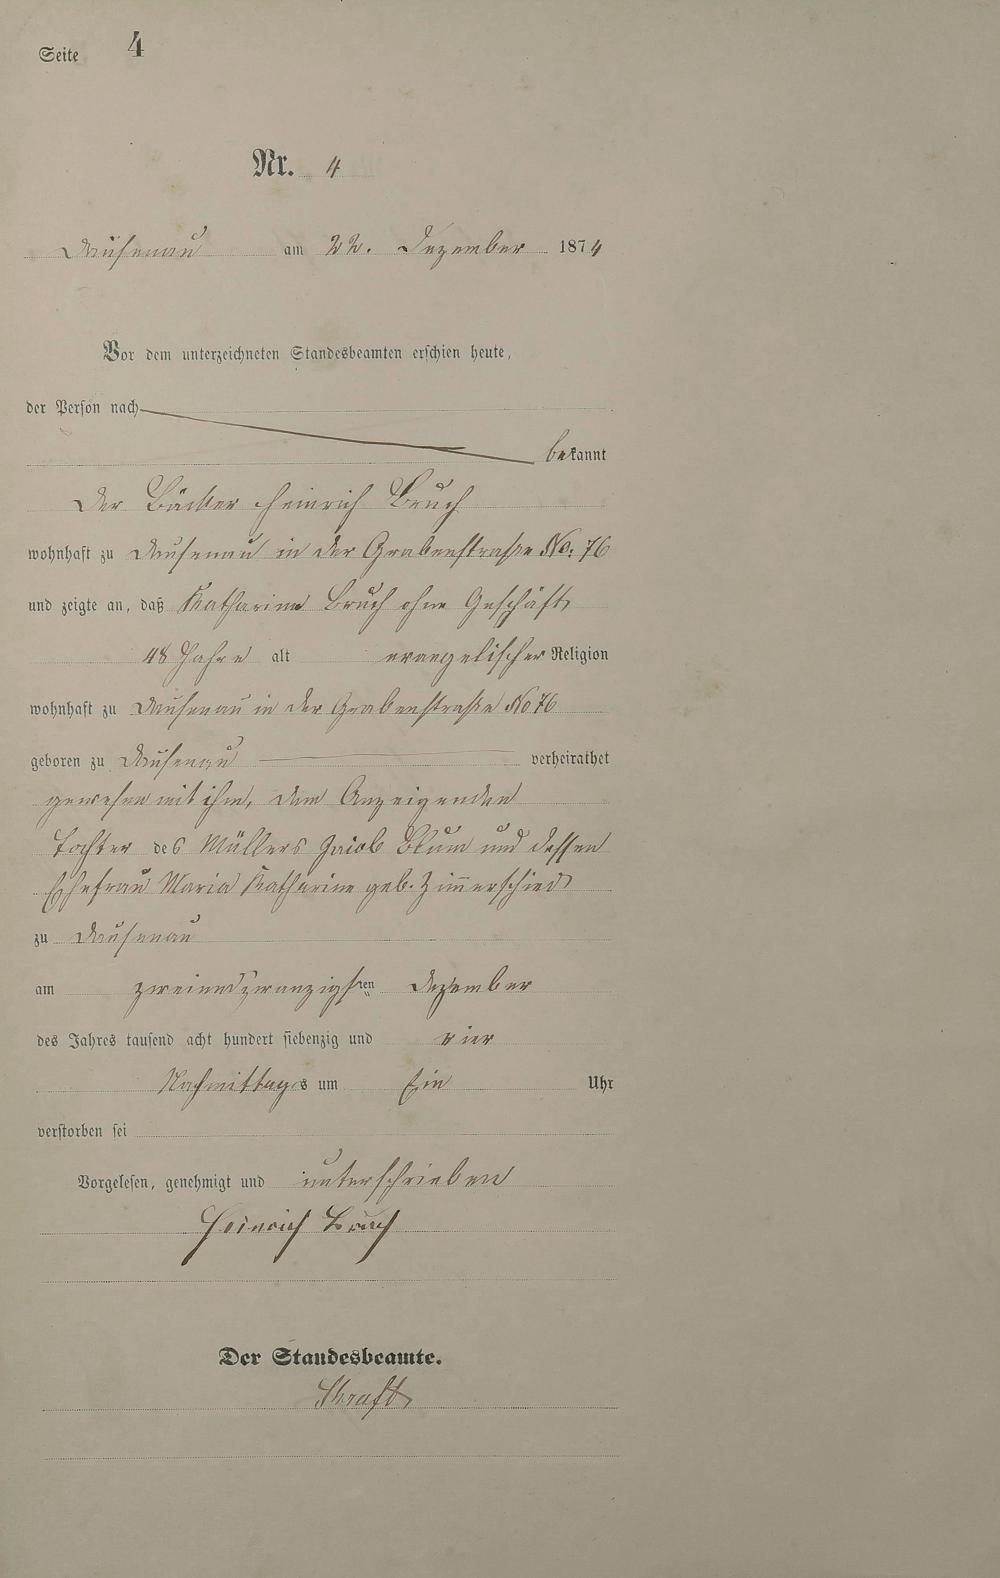 Seite 4
Nr. 4
Dausenau am 22. Dezember 1874
Vor dem unterzeichneten Standesbeamten erschien heute,
der Person nach
bekannt
Der Bäcker Heinrich Bruch
wohnhaft zu Dausenau in der Grabenstraße No: 76
und zeigte an, daß Katharina Bruch ohne Geschäft
48 Jahre alt evangelischer Religion
wohnhaft zu Dausenau in der Grabenstraße No 76
geboren zu Dausenau verheirathet
gewesen mit ihm, dem Anzeigenden
Tochter des Müllers Jacob Blum und dessen
Ehefrau Maria Katharine geb. Zimmerschied
zu Dausenau
am zweiundzwanzigsten Dezember
des Jahres tausend acht hundert siebenzig und vier
Nachmittags um Ein Uhr
verstorben sei
Vorgelesen, genehmigt und unterschrieben
Heinrich Bruch
Der Standesbeamte.